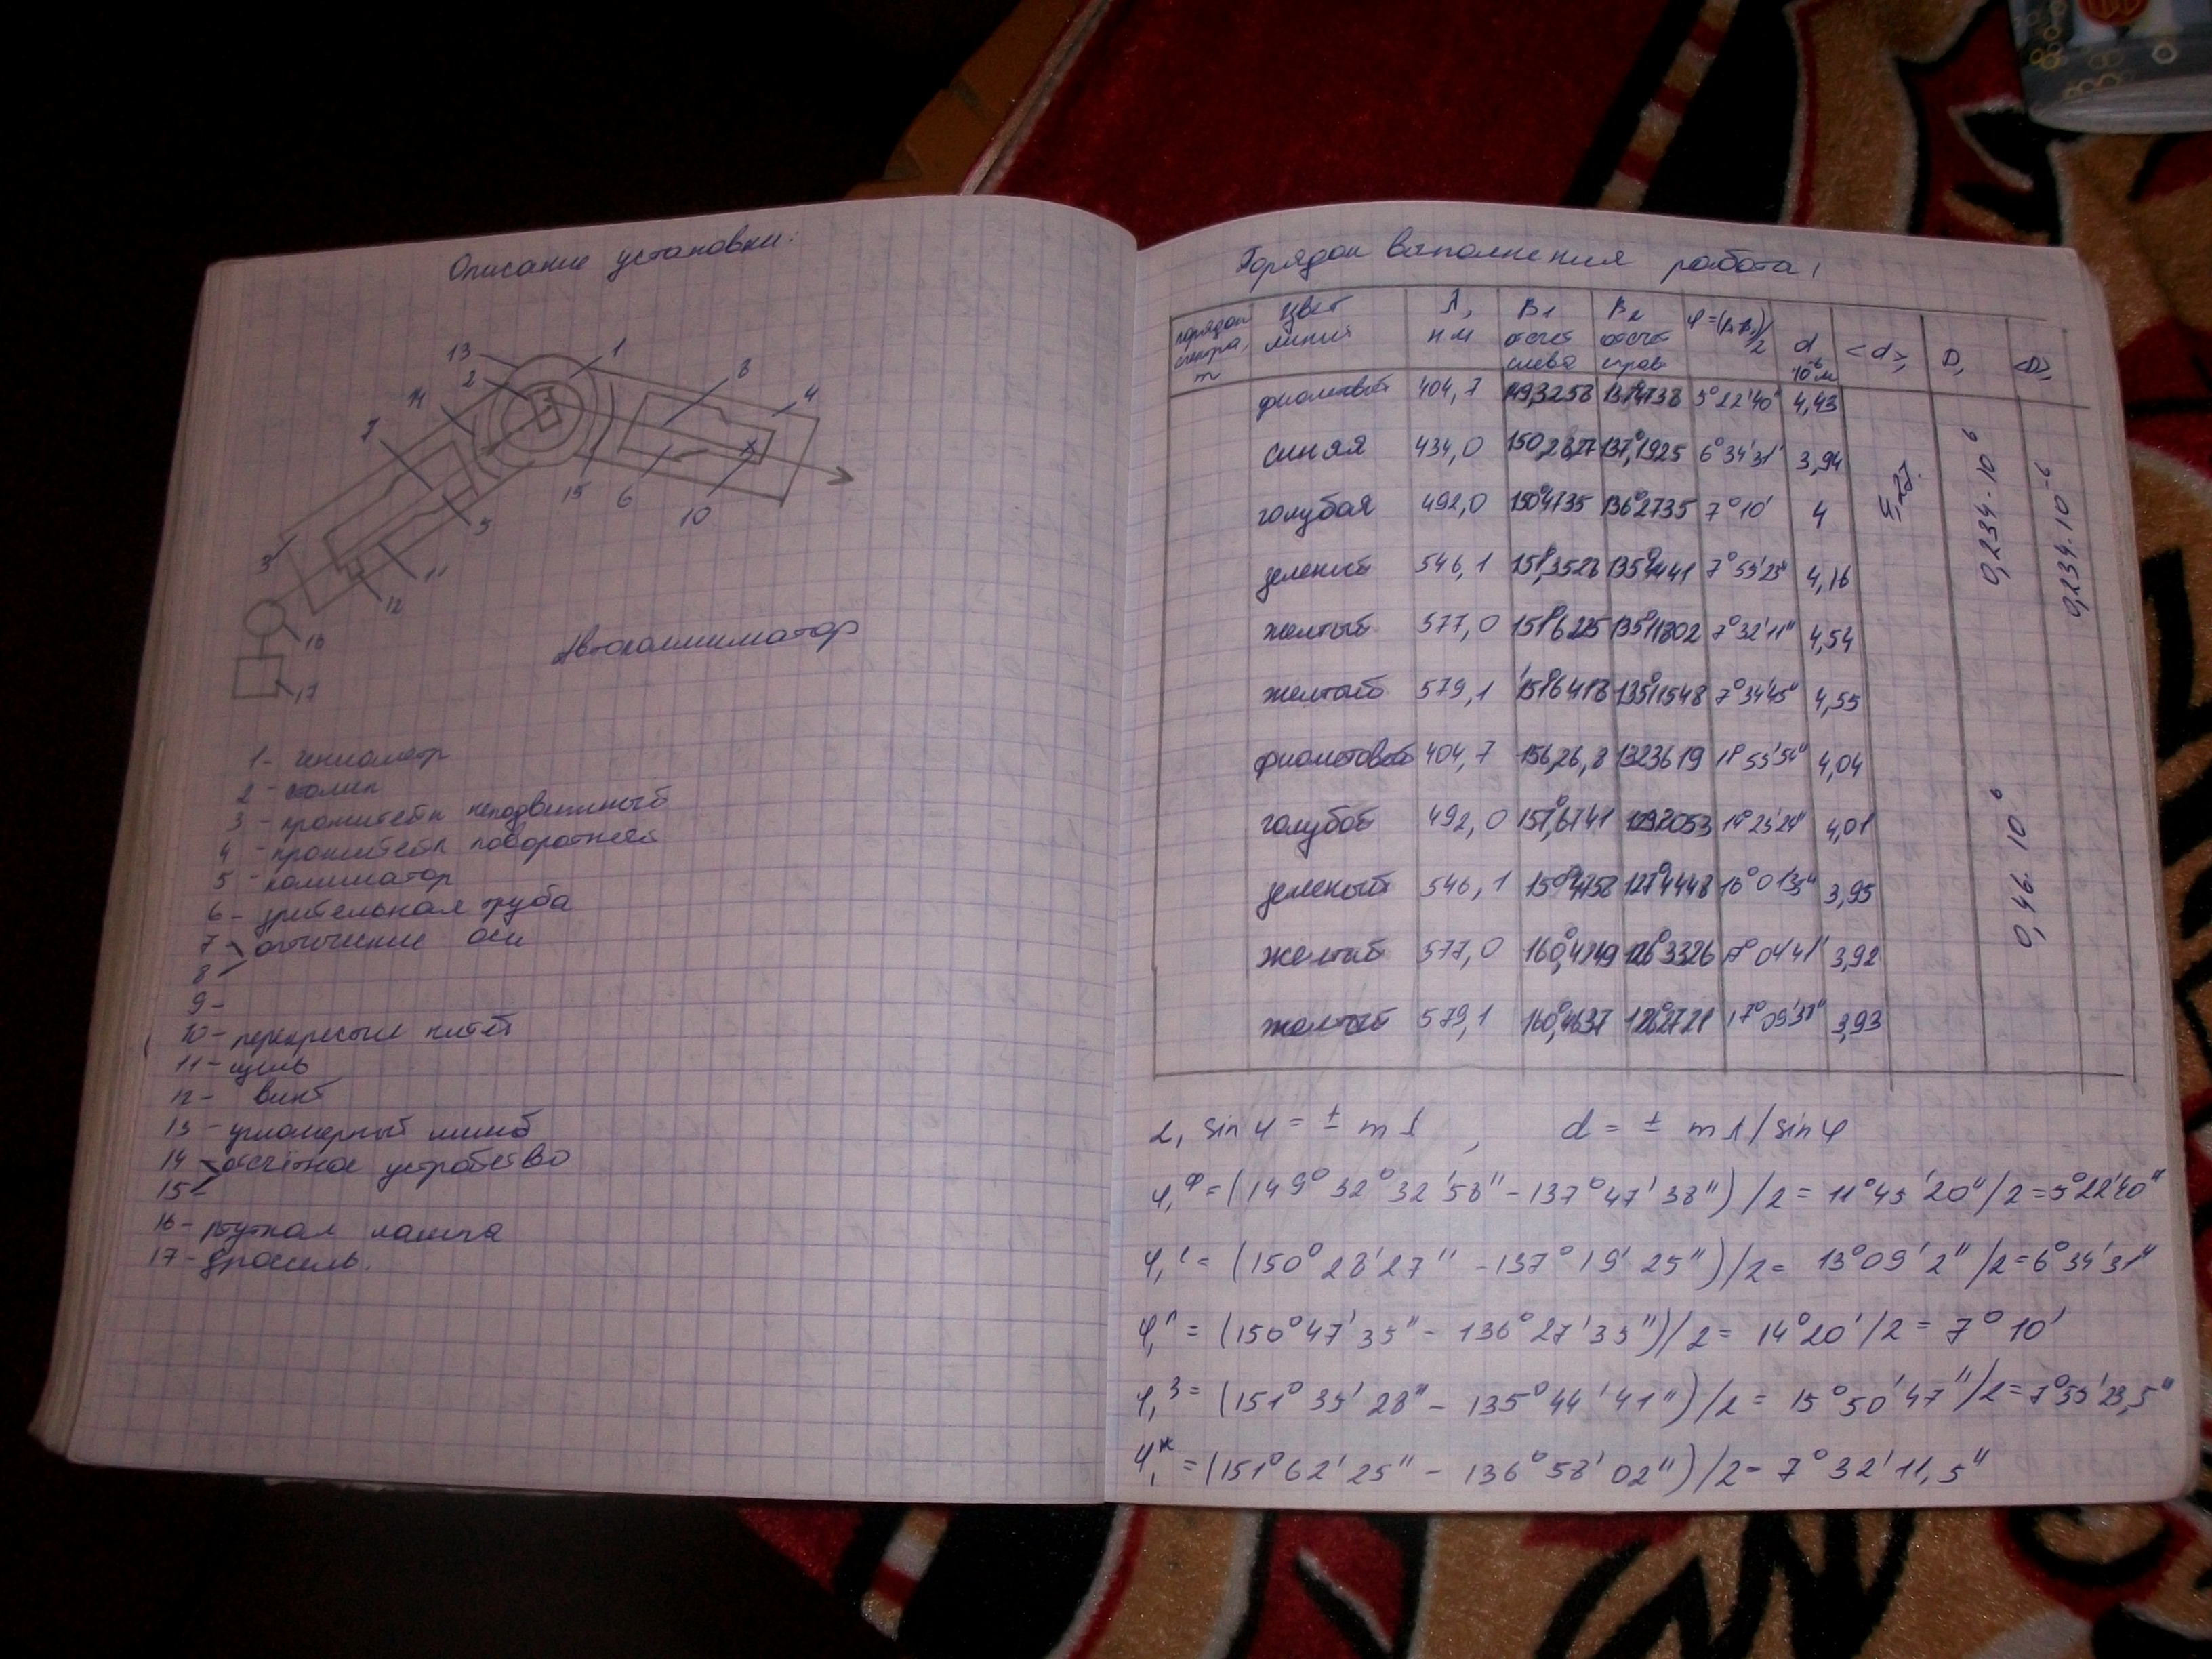 Описание установки:
13
1
2
8
14
4
7
15
6
10
5
3
11
12
16
17
Автоколлиматор
1- гониометр
2- столик
3- кронштейн неподвижный
4- кронштейн поворотный
5- коллиматор
6- зрительная труба
7- оптические оси
8
9-
10- перекрестые нитей
11- щель
12- винт
13- угломерный лимб
14- отсчётное устройство
15-
16- ртутная лампа
17- дроссель.
Порядок выполнения работа:
порядок спектра, m цвет линия λ, нм β1 отсчет слева β2 отсчет прав φ=(β1-β2)/2 d 10⁻⁶м <d>, D, <D>,
фиолетовый 404,7 149,3258 137°4738 5°22'40" 4,43
синяя 434,0 150,2827 137,1925 6°34'31" 3,94
голубая 492,0 150°4735 136°2735 7°10' 4
зеленый 546,1 151°,3528 135°4441 7°55'23" 4,16
желтый 577,0 151°6225 135°11802 7°32'11" 4,54
желтый 579,1 151°6418 135°11548 7°34'45" 4,55
фиолетовый 404,7 156,26,8 1323619 11°55'54" 4,04
голубой 492,0 157°,6741 1292053 14°23'24" 4,01
зеленый 546,1 159°4758 127°4448 16°01'35" 3,95
желтый 577,0 160,4249 126°3326 17°04'41" 3,92
желтый 579,1 160,°4637 126°2721 17°09'38" 3,93
4,22.
0,234·10⁶
0,46·10⁶
0,234·10⁻⁶
2, sin φ = ± m λ , d = ± m λ/sin φ
φ₁ᶲ = (149°32°32'58" - 137°47'38") /2 = 11°45'20"/2 = 5°22'40"
φ₁ᶜ = (150°28'27" - 137°19'25")/2 = 13°09'2"/2 = 6°34'31"
φ₁ᴦ = (150°47'35" - 136°27'35")/2 = 14°20'/2 = 7°10'
φ₁³ = (151°35'28" - 135°44'41")/2 = 15°50'47"/2 = 7°55'23,5"
φ₁ж = (151°62'25" - 136°58'02")/2 - 7°32'11,5"